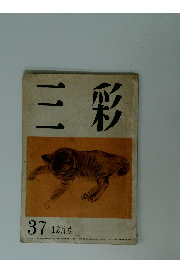 三彩
37 12月号